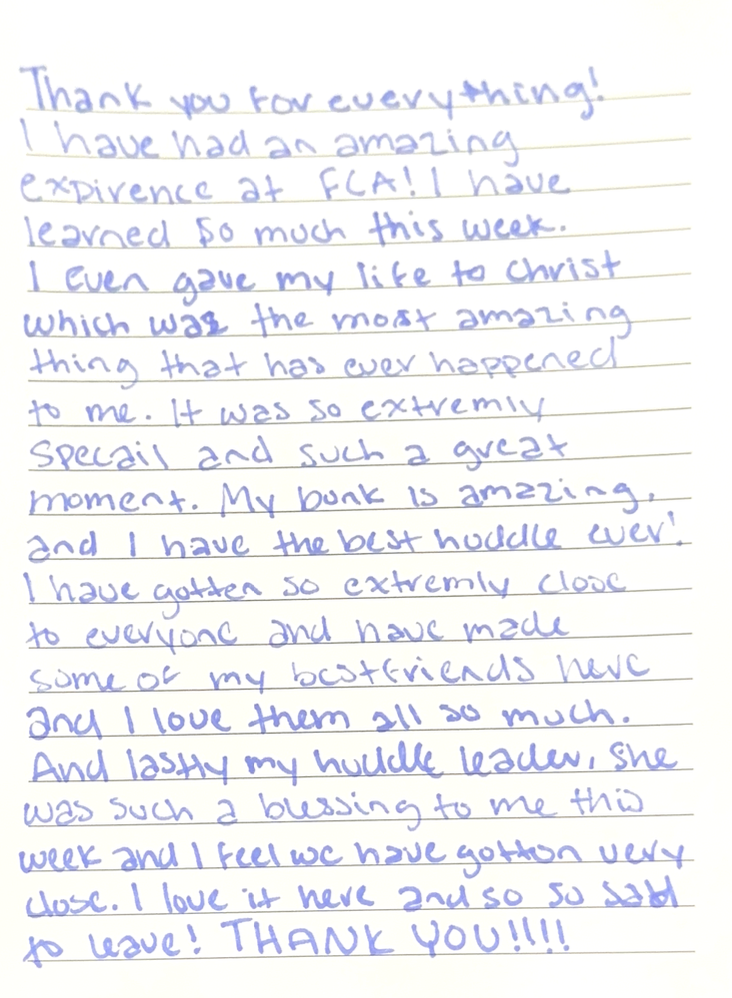 Thank you for everything!
I have had an amazing
expirence at FCA! I have
learned so much this week.
I even gave my life to Christ
which was the most amazing
thing that has ever happened
to me. It was so extremly
specail and such a great
moment. My bunk is amazing,
and I have the best huddle ever!
I have gotten so extremly close
to everyone and have made
some of my bestfriends here
and I love them all so much.
And lastly my huddle leader, she
was such a blessing to me this
week and I feel we have gotton very
close. I love it here and so so sad
to leave! THANK YOU!!!!